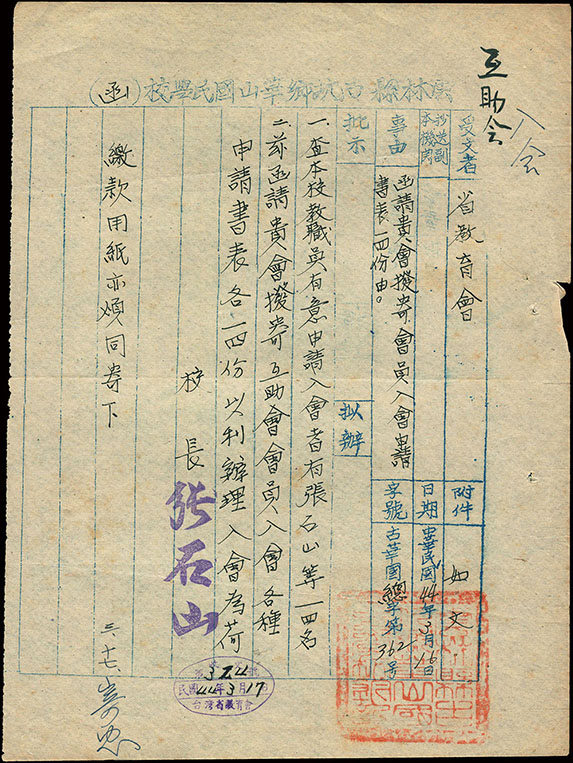 互助會
入会
雲林縣古坑鄉華山國民學校(函)
受文者
省教育會
附件
如文
抄送副本機関
日期
中華民國44年3月16日
事由
函請貴會撥寄會員入會申請
書表一四份由。
字號
古華國總字第362号
批示
拟辦
一、查本校教職員有意申請入會者有張石山等一四名
二、茲函請貴會撥寄互助會會員入會各種
申請書表各一四份以利辦理入會為荷
校長
張石山
繳款用紙亦煩同寄下
三、十七
民國44年3月17日
台灣省教育會